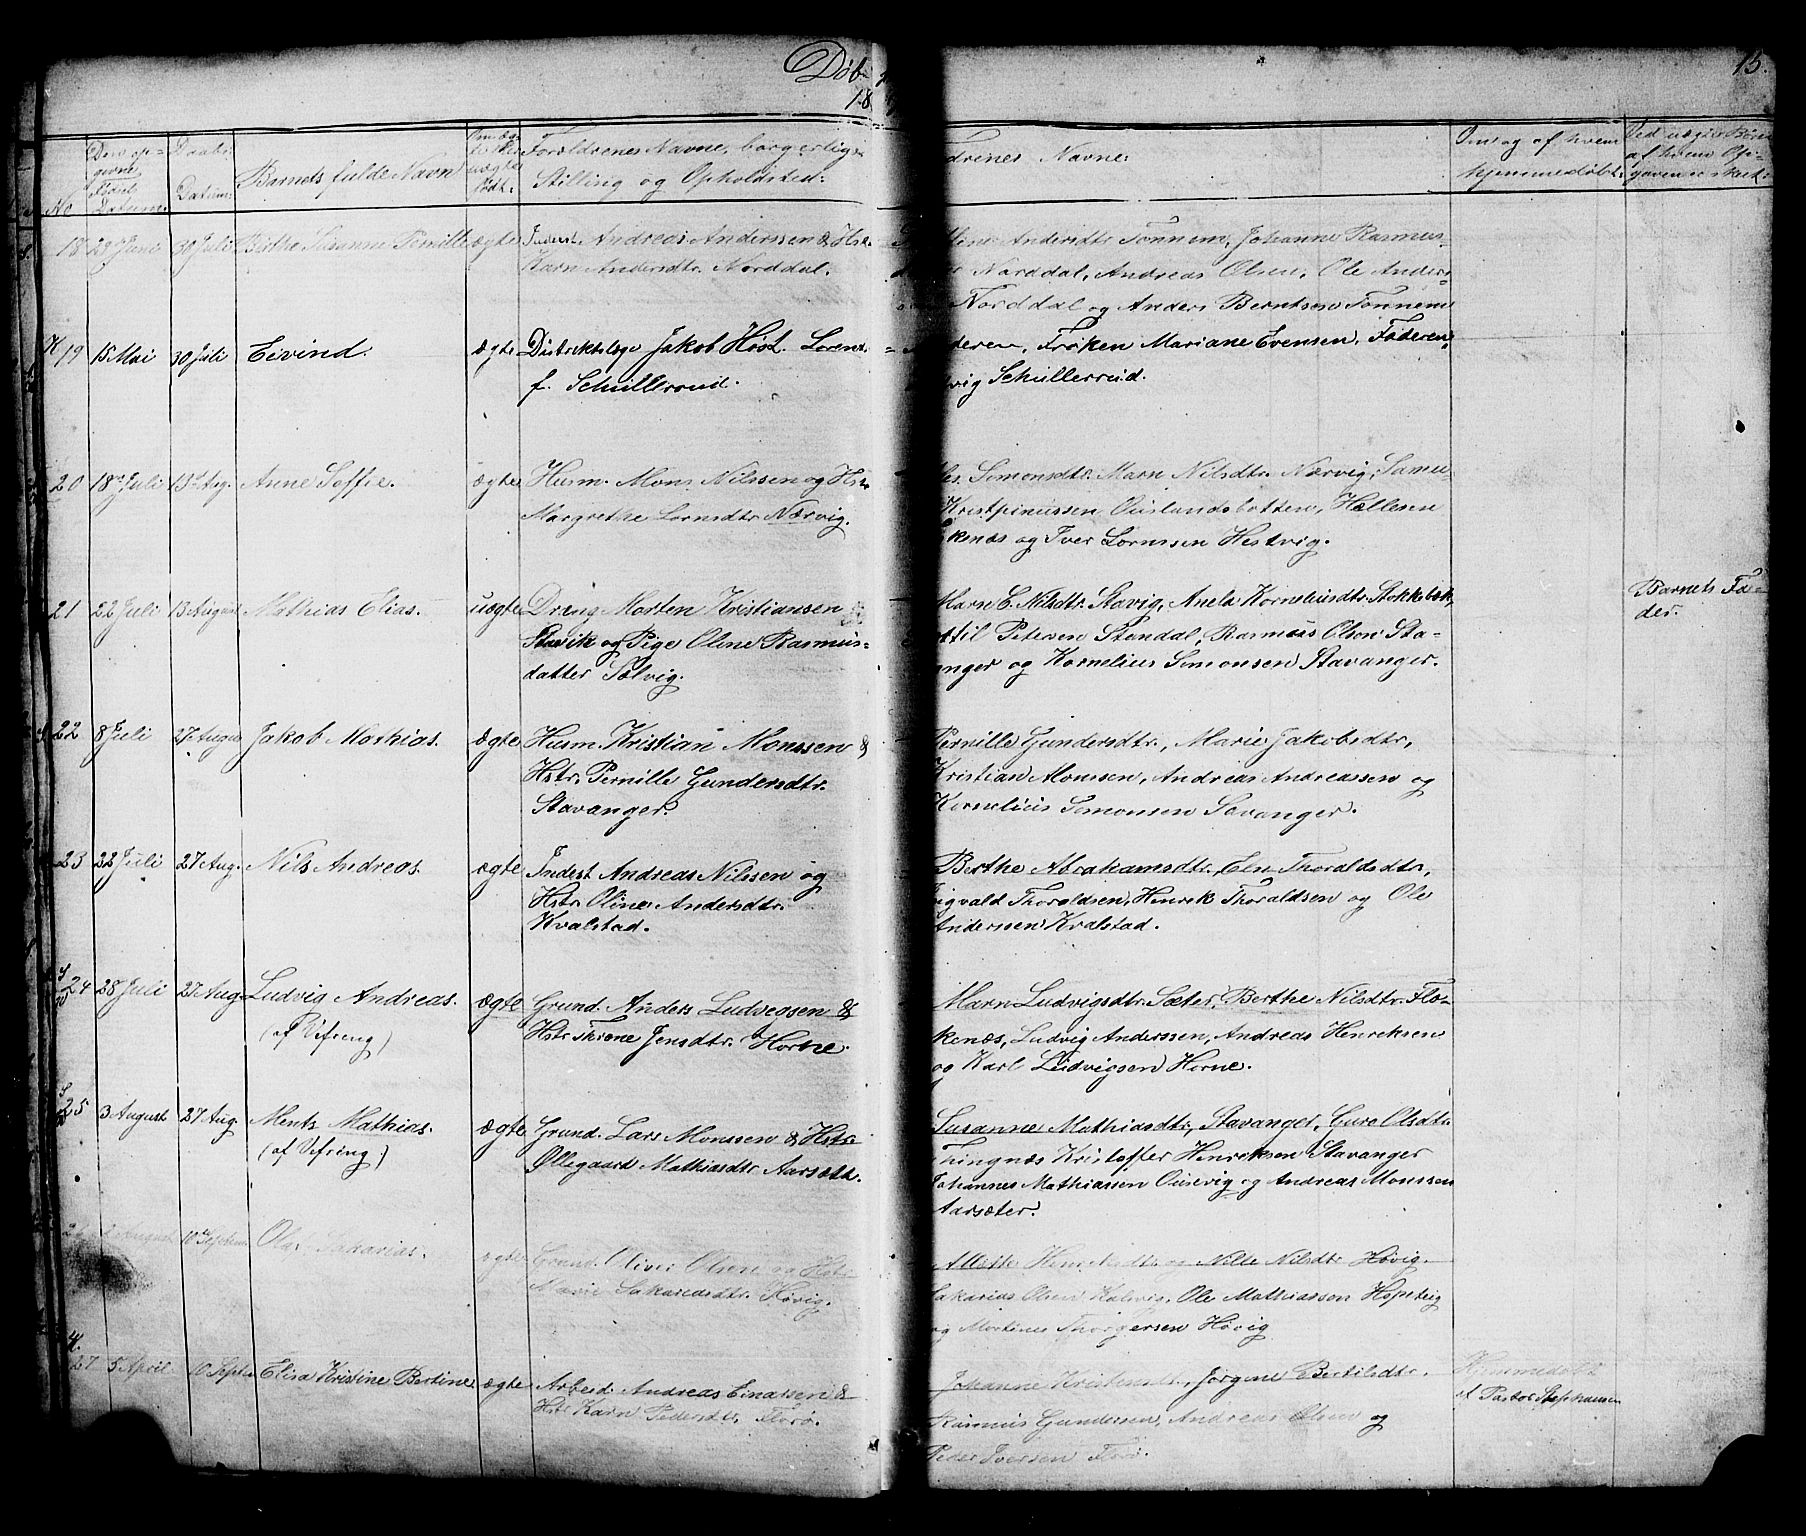 Døb
15.
18
No
Den op-
givne
Fødsel
Datum.
Daabs
Datum.
Barnets fulde Navn
Om æg-
te eller
uægte
født.
Forældrenes Navne, borgerlige
Stilling og Opholdsted.
Faddrenes Navne.
Om og af hvem
hjemmedøbt.
Ved uægte Børn
af hvem Opgi-
gaven er skeet.
18 29 Juni 30 Juli Birthe Susanne Pernille ægte Inderst Andreas Anderssen & Hst.
Karn Andersdtr. Norddal.
Andersdtr. Tonnem, Johanne Rasmus-
Norddal, Andreas Olsen, Ole Anders-
Norddal og Anders Berntsen Tonnem
K 19 15 Mai 30 Juli Eivind. ægte Distriktslæge Jakob Høst. Lorenz.
f. Schullerud.
Frøken Mariane Evensen, Faderen,
Schullerud.
20 18de Juli 13de Aug. Anne Soffie. ægte Husm. Mons Nilssen og Hst.
Margrethe Lornsdtr. Nærvig.
Simonsdtr. Marn Nilsdtr. Nærvig, Samu-
Kristpinussen Ouslandsbotten, Hellesen
og Iver Lornssen Hestvig.
21 22 Juli 13 August Mathias Elias. uægte Dreng Morten Kristiansen
Stavik og Pige Oline Rasmus-
datter Solvig.
Marn E. Nilsdtr. Stavig, Anela Kornelusdtr. Stokkebek,
Petersen Standal, Rasmus Olsen Sta-
anger og Kornelius Simonsen Stavanger.
Barnets Fa-
der.
22 8 Juli 27 August Jakob Mathias. ægte Husm. Kristian Monssen &
Hstr. Pernille Gundersdtr.
Stavanger.
Pernille Gundersdtr., Marie Jakobsdtr,
Kristian Monsen, Andreas Andreassen og
Kornelius Simonsen Savanger.
23 22 Juli 27 Aug. Nils Andreas. ægte Inderst Andreas Nilssen og
Hstr. Oline Andersdtr.
Kvalstad.
Berthe Abrahamsdtr., Eln Thoraldsdtr,
Sigvald Thoraldsen, Henrik Thoraldsen og Ole
Anderssen Kvalstad.
24 28 Juli 27 Aug. Ludvig Andreas. ægte Grund. Anders Ludvigsen &
(af Vefring) Hstr. Thrine Jensdtr. Horne.
Marn Ludvigsdtr. Sæter, Berthe Nilsdtr. Flo-
kenæs, Ludvig Anderssen, Andreas Henriksen
og Karl Ludvigsen Horne.
25 3 August 27 Aug. Ments Mathias. ægte Grund. Lars Monssen & Hstr.
(af Vefring) Øllegaard Mathiasdtr Aarsæth.
Susanne Mathiasdtr, Stavanger, Guro Olsdtr.
Thingnæs Kristoffer Henriksen Stavanger
Johannes Mathiassen Ousevig og Andreas Monssen
Aarsæter.
26 2 August 10de Septem. Olai Sakarias. ægte Grund. Oliver Olsen og Hstr.
Marie Sakariasdtr. Høvig.
Henriksdtr. og Nille Nilsdtr. Høvig.
Sakarias Olsen Kalvig, Ole Mathiassen Hopevig
og Martines Thorgersen Høvig
27 5 April 10 Septe. Elisa Kristine Bertine ægte Arbeid. Andreas Enassen &
Hstr. Karn Pedersdtr. Florø.
Johanne Kristensdtr., Jørgine Bertilsdtr.
Rasmus Gundersen, Andreas Olsen og
Peder Iversen Florø.
Hjemmedøbt
af Pastor Stephansen